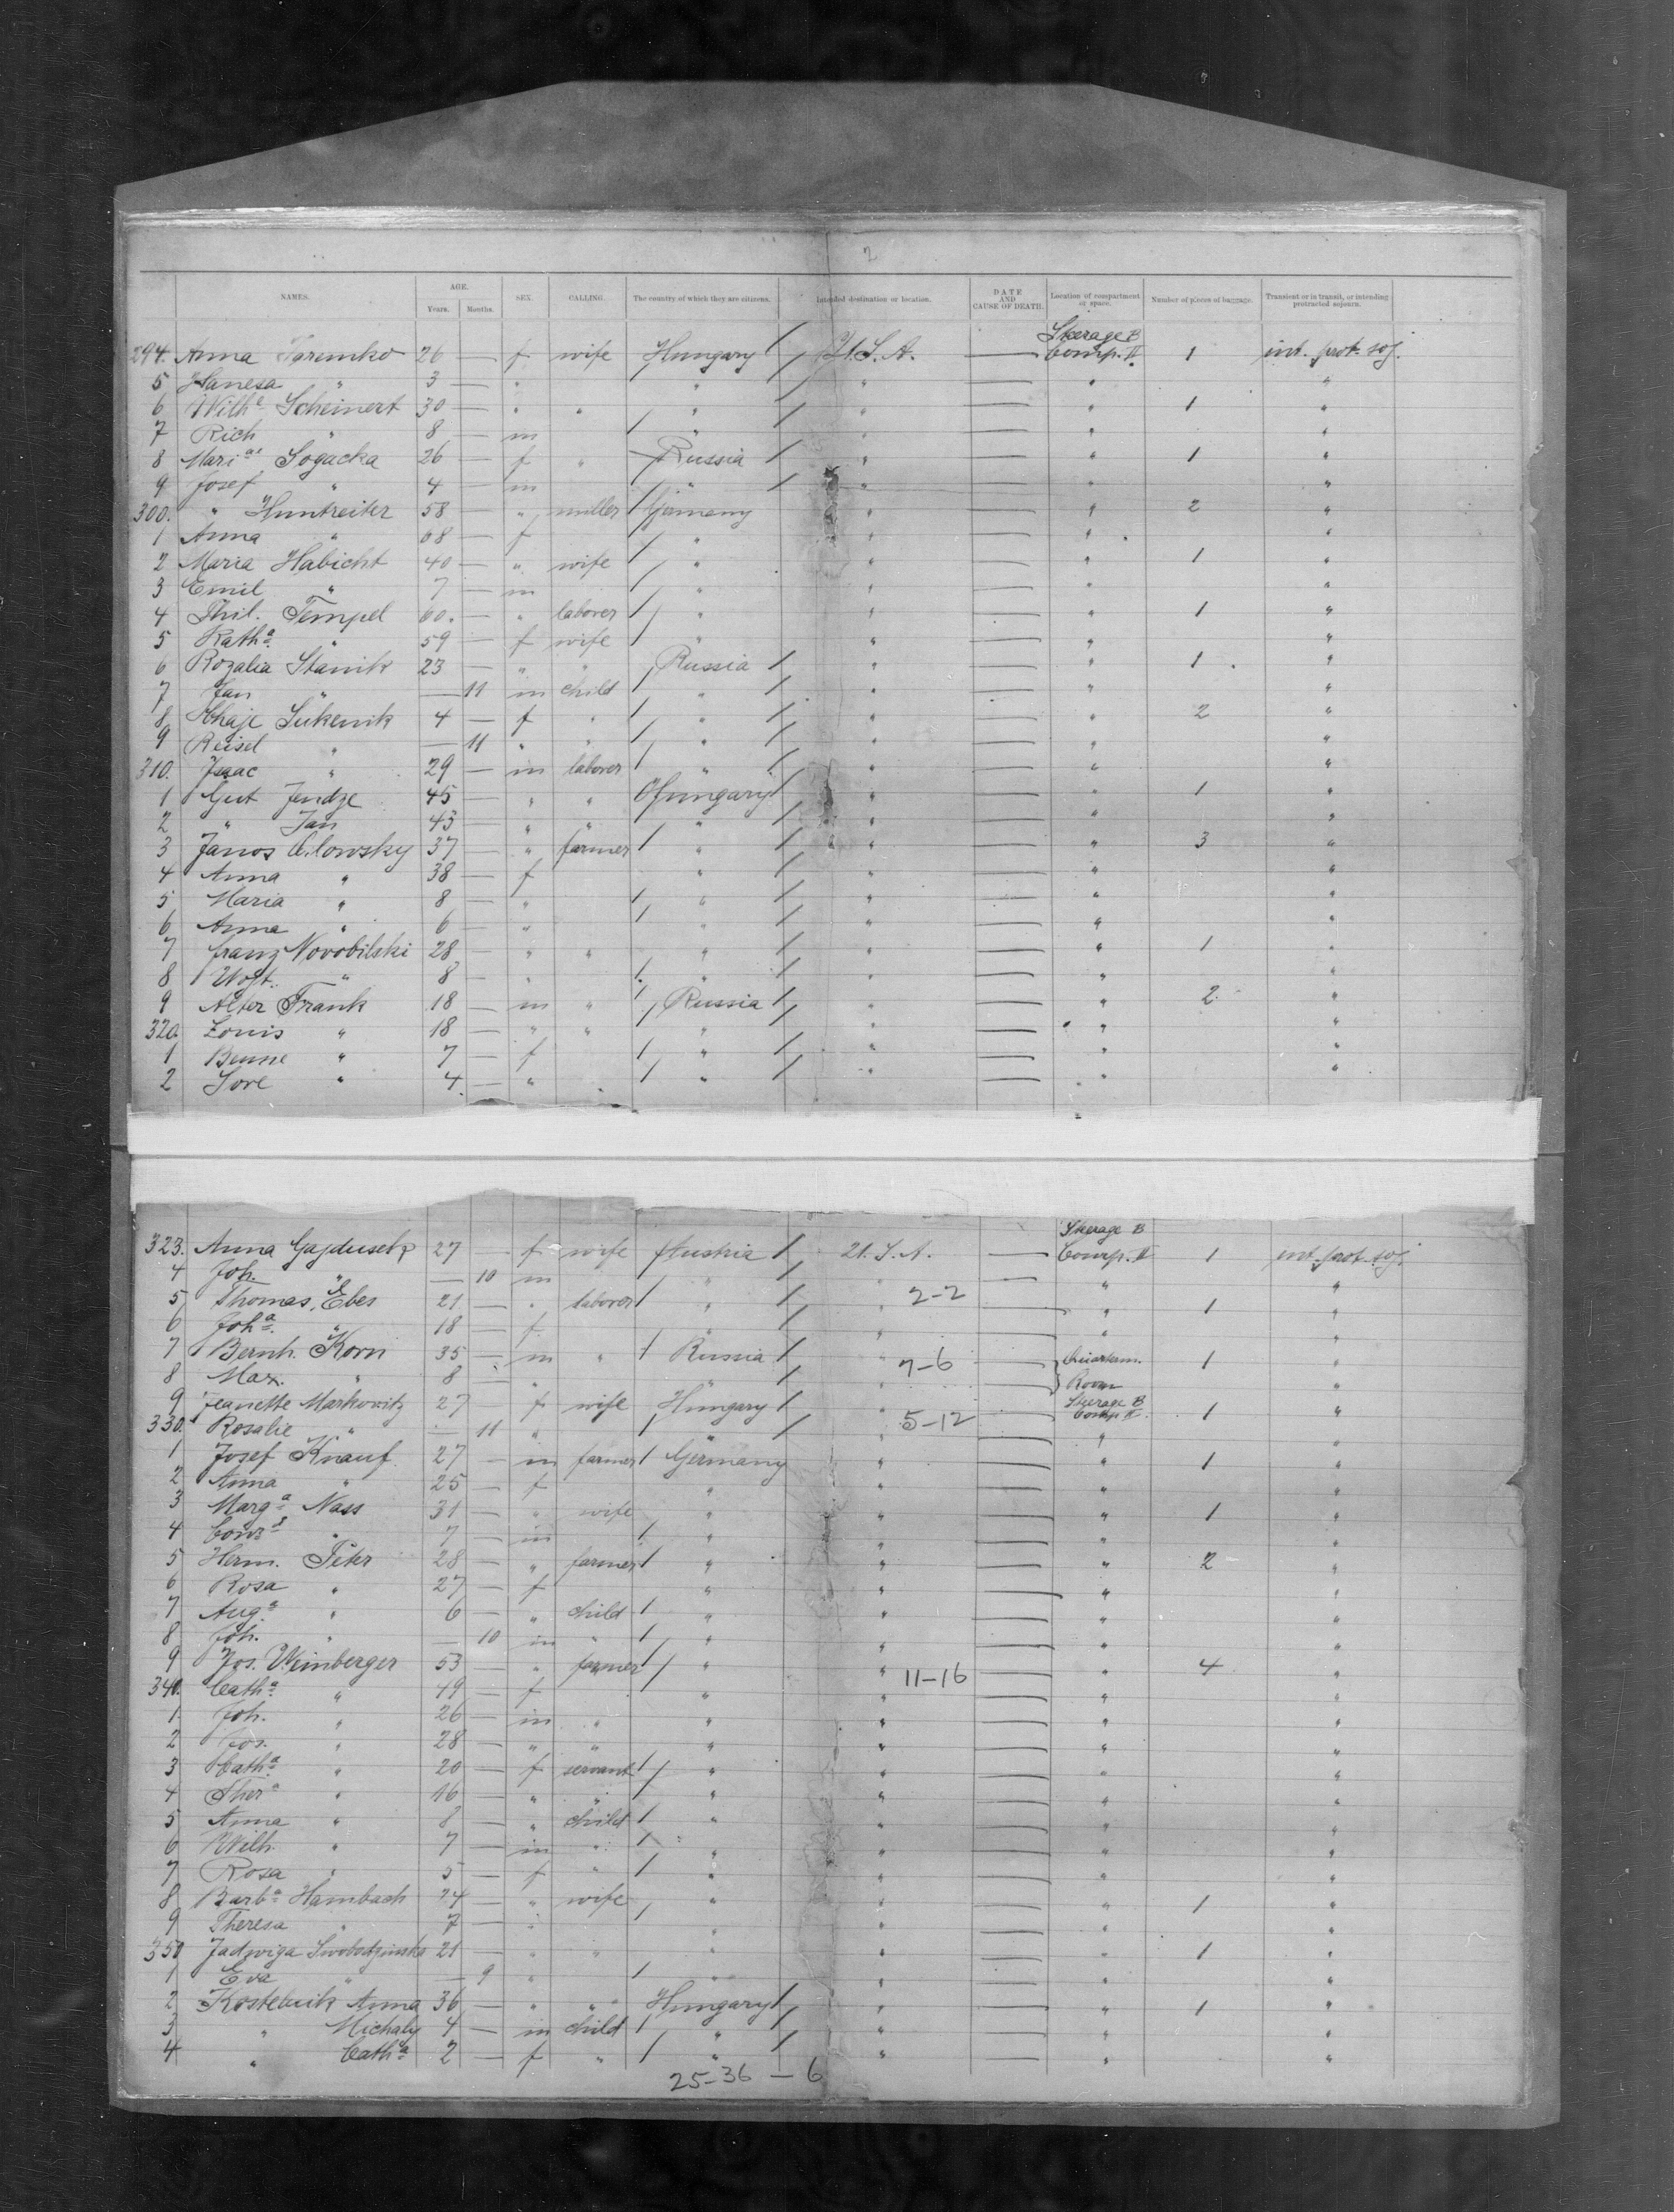 2
NAMES. AGE. Years. Months. SEX. CALLING. The country of which they are citizens. Intended destination or location. DATE AND CAUSE OF DEATH. Location of compartment or space. Number of pieces of baggage. Transient or in transit, or intending protracted sojourn.
Steerage B
294. Anna 26 — f wife Hungary U.S.A. — Comp. II 1 int. prot. soj.
5 Hanesa " 3 — " " " — " "
6 Wilhª Scheinert 30 — " " " " — " 1 "
7 Rich " 8 — m " " — " "
8 Mariª Sogacka 26 — f " Russia " — " 1 "
9 Josef " 4 — m " " — " "
300. " Huntreiter 58 — " miller Germany " — " 2 "
1 Anna " 68 — f " " — " "
2 Maria Habicht 40 — " wife " " — " 1 "
3 Emil " 7 — m " " — " "
4 Phil. Tempel 60. — " laborer " " — " 1 "
5 Kathª " 59 — f wife " " — " "
6 Rozalia Stanik 23 — " " Russia " — " 1 "
7 Jan " — 11 m child " " — " "
8 Chaje Sukenik 4 — f " " " — " 2 "
9 Reisel " — 11 " " " " — " "
310. Isaac " 29 — m laborer " " — " "
1 Gut Jendze 45 — " " Hungary " — " 1 "
2 " Jan 43 — " " " " — " "
3 Janos 37 — " farmer " " — " 3 "
4 Anna " 38 — f " " — " "
5 Maria " 8 — " " " — " "
6 Anna " 6 — " " " — " "
7 Franz Novobilski 28 — " " " " — " 1 "
8 " 8 — " " " — " "
9 Alter Frank 18 — m " Russia " — " 2 "
320. Louis " 18 — " " " " — " "
1 " 7 — f " " — " "
2 Sore " 4 — " " " — " "
Steerage B
323. Anna Gajdusek 27 — f wife Austria U.S.A. — Comp. II 1 int. prot. soj.
4 Joh. " — 10 m " " — " "
5 Thomas Ebes 21 — " laborer " " 2-2 — " 1 "
6 Johª " 18 — f " " — " "
7 Bernh. Korn 35 — m " Russia " 7-6 — 1 "
8 Max. " 8 — " " " — Room "
Steerage B
9 Jeanette Markowitz 27 — f wife Hungary " 5-12 — Comp. II 1 "
330. Rosalie " — 11 " " " — " "
1 Josef Knauf 27 — m farmer Germany " — " 1 "
2 Anna " 25 — f " " — " "
3 Margª Nass 31 — " wife " " — " 1 "
4 " 7 — m " " — " "
5 Herm. Peter 28 — " farmer " " — " 2 "
6 Rosa " 27 — f " " — " "
7 Augª " 6 — " child " " — " "
8 Joh. " — 10 m " " " — " "
9 Jos. Weinberger 53 — " farmer " " 11-16 — " 4 "
340. Cathª " 49 — f " " — " "
1 Joh. " 26 — m " " " — " "
2 Jos. " 28 — " " " " — " "
3 Cathª " 20 — f servant " " — " "
4 Therª " 16 — " " " " — " "
5 Anna " 8 — " child " " — " "
6 Wilh. " 7 — m " " " — " "
7 Rosa " 5 — f " " " — " "
8 Barbª Hambach 24 — " wife " " — " 1 "
9 Theresa " 7 — " " " — " "
350 Jadwiga Swobodzinska 21 — " " " " — " 1 "
1 Eva " — 9 " " " — " "
2 Kostelnik Anna 36 — " " Hungary " — " 1 "
3 " Michaly 4 — m child " " — " "
4 " Cathª 2 — f " " " — " "
25-36 — 6